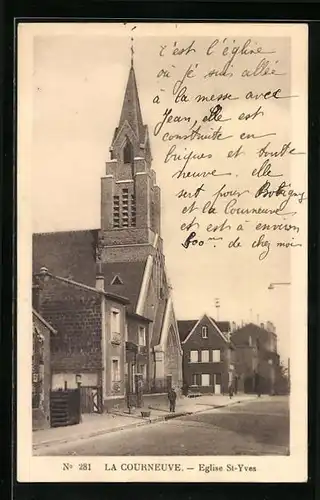 c'est l'église
où je suis allée
à la messe avec
Jean, elle est
construite en
briques et toute
neuve. elle
sert pour Bobigny
et la Courneuve
et est à environ
600m. de chez moi
No 281 LA COURNEUVE. - Eglise St-Yves